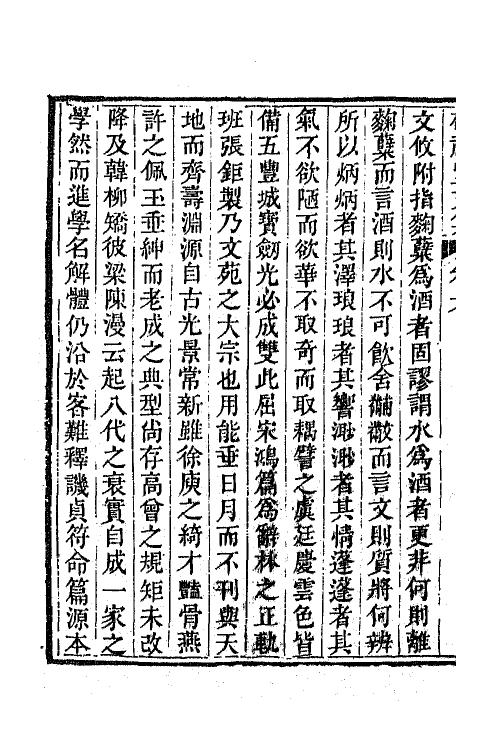 文攸附指麴糵爲酒者固謬謂水爲酒者更非何則離
麴糵而言酒則水不可飮舍黼黻而言文則質將何辨
所以炳炳者其澤琅琅者其響渺渺者其情蓬蓬者其
氣不欲陋而欲華不取奇而取耦譬之虞廷慶雲色皆
備五豐城寶劒光必成雙此屈宋鴻篇爲辭林之正軌
班張鉅製乃文苑之大宗也用能垂日月而不刊與天
地而齊壽淵源自古光景常新雖徐庾之綺才豔骨燕
許之佩玉垂紳而老成之典型尙存高曾之規矩未改
降及韓柳矯彼梁陳漫云起八代之衰實自成一家之
學然而進學名解體仍沿於客難釋譏貞符命篇源本